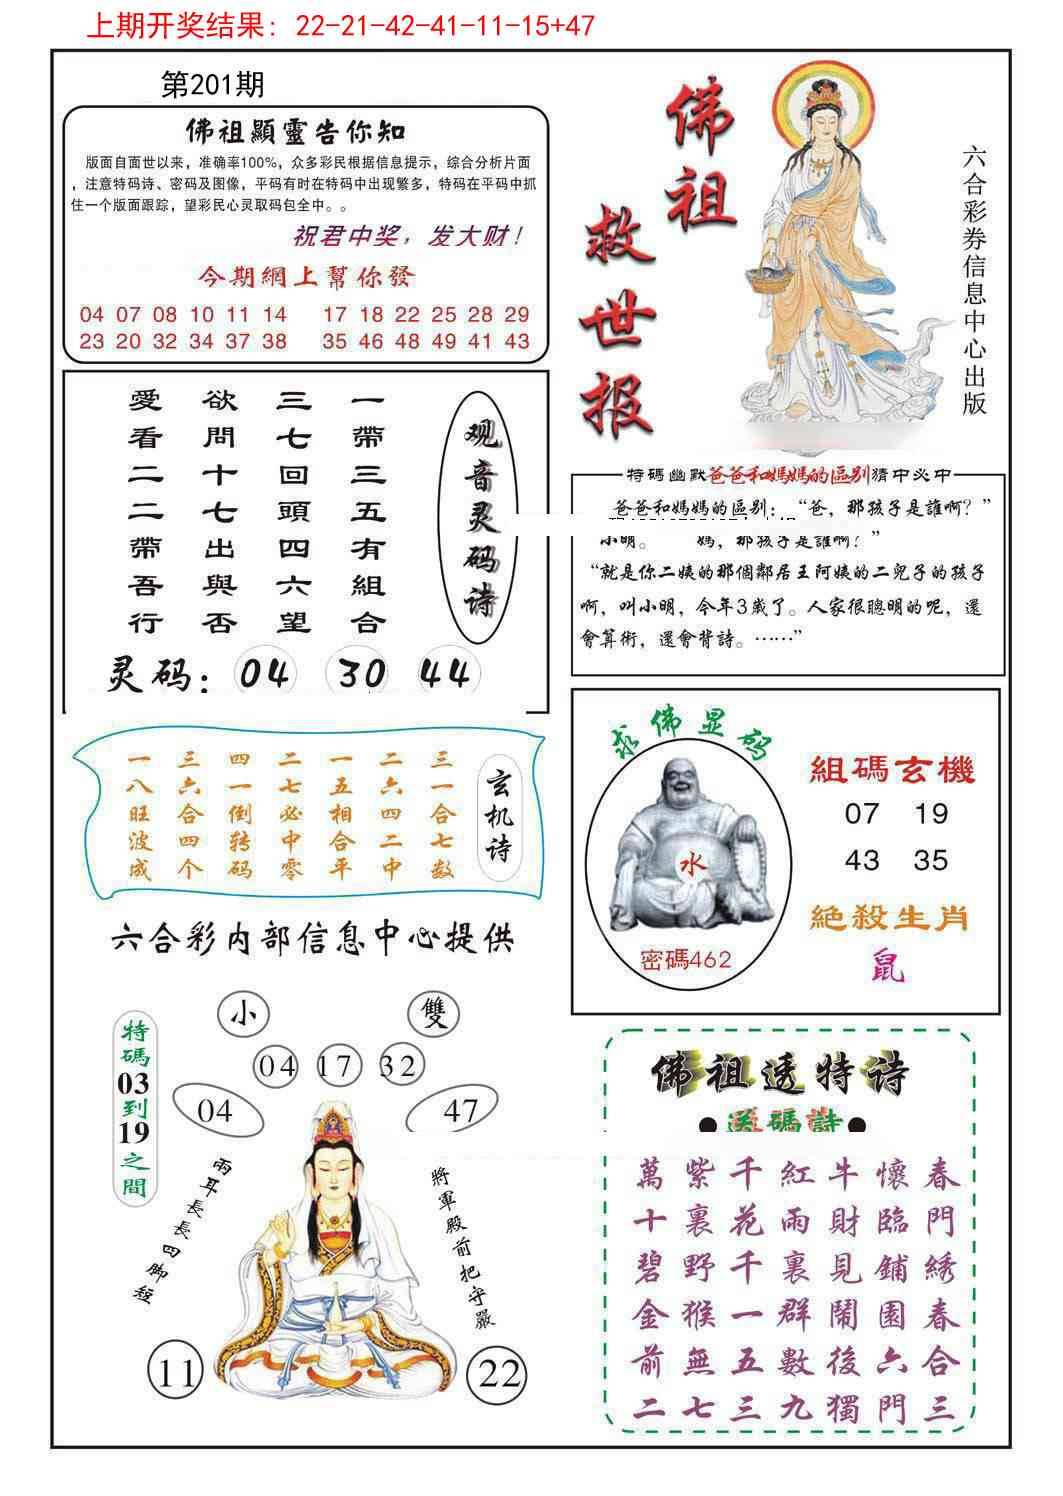 上期开奖结果：22-21-42-41-11-15+47
第201期
佛祖顯靈告你知
版面自面世以来，准确率100%，众多彩民根据信息提示，综合分析片面
，注意特码诗、密码及图像，平码有时在特码中出现繁多，特码在平码中抓
住一个版面跟踪，望彩民心灵取码包全中。。
祝君中奖，发大财！
今期網上幫你發
04 07 08 10 11 14 17 18 22 25 28 29
23 20 32 34 37 38 35 46 48 49 41 43
佛祖
救世报
六合彩券信息中心出版
观音灵码诗
一帶三五有組合
三七回頭四六望
欲問十七出與否
愛看二二帶吾行
灵码：04 30 44
特碼幽默爸爸和媽媽的區别猜中必中
爸爸和媽媽的區别：“爸，那孩子是誰啊？”
小明。 媽，那孩子是誰啊？”
“就是你二姨的那個鄰居王阿姨的二兒子的孩子
啊，叫小明，今年3歲了。人家很聰明的呢，還
會算術，還會背詩。……”
玄机诗
三一合七数
二六四二中
一五相合平
二七必中零
四一倒转码
三六合四个
一八旺波成
求佛显码
水
密碼462
組碼玄機
07 19
43 35
絕殺生肖
鼠
六合彩内部信息中心提供
小
雙
04 17 32
04
47
特碼03到19之間
兩耳長長四脚短
將軍殿前把守嚴
11
22
佛祖透特诗
●送碼詩●
春門綉春合三
懷臨鋪園六門
牛財見鬧後獨
紅雨裏群數九
千花千一五三
紫裏野猴無七
萬十碧金前二